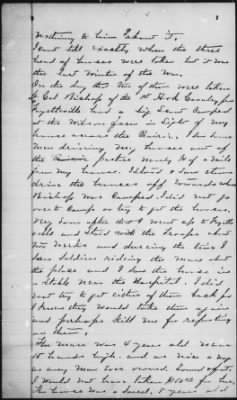 I cant tell exactly when the three
head of horses were taken but it was
the last winter of the War.
On the day that two of them were taken
Lt Col Bishop of the 1st Ark Cavalry from
Fayetteville had a big Scout camped
at the Wilson farm in sight of my
house across the Prairie. I had been
men driving my horses out of
the pasture nearly ½ of a mile
from my house. I saw them
drive the horses off towards where
Bishop was Camped. I did not go
over to Camp to try & get the horses.
Very soon after I went up to Fayette
ville and staid with the Troops about
two weeks and during the time I
saw Soldiers riding the mare about
the place and I saw the horse in
a Stable near the Hospital. I did
not try & get either of them back for
I knew they would take them again
and perhaps kill me for reporting
on them.
The mare was 4 years old near
15 hands high. and as nice a nag
as any man ever owned. Sound
I would not have taken for her.
The horse was a Sorrel, 8 years old